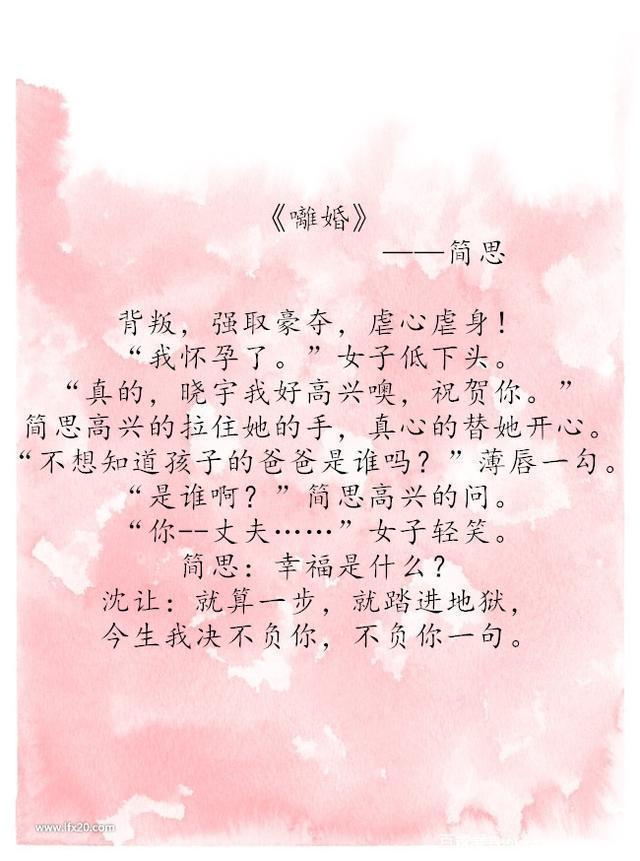 《囄婚》
——简思
背叛，强取豪夺，虐心虐身！
“我怀孕了。”女子低下头。
“真的，晓宇我好高兴噢，祝贺你。”
简思高兴的拉住她的手，真心的替她开心。
“不想知道孩子的爸爸是谁吗？”薄唇一勾。
“是谁啊？”简思高兴的问。
“你--丈夫……”女子轻笑。
简思：幸福是什么？
沈让：就算一步，就踏进地狱，
今生我决不负你，不负你一句。
www.lfx20.com